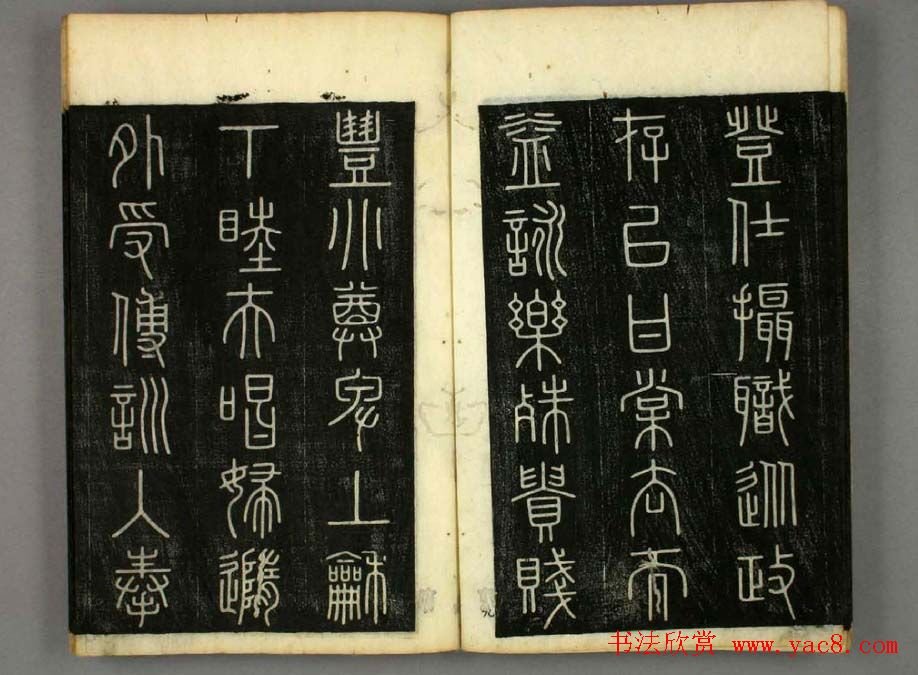 登仕攝職從政
存以甘棠去而
益詠樂殊貴賤
豊別尊卑上龢
下睦夫唱婦隨
外受傅訓入奉
书法欣赏 www.yac8.com